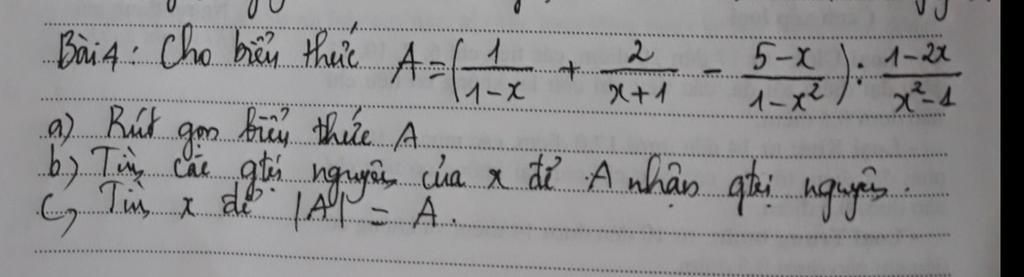 Bài 4: Cho biểu thức A = (1/(1-x) + 2/(x+1) - (5-x)/(1-x²)) : (1-2x)/(x²-1)
a) Rút gọn biểu thức A
b) Tìm các gtrị nguyên của x để A nhận gtrị nguyên.
c, Tìm x để |A| = A.